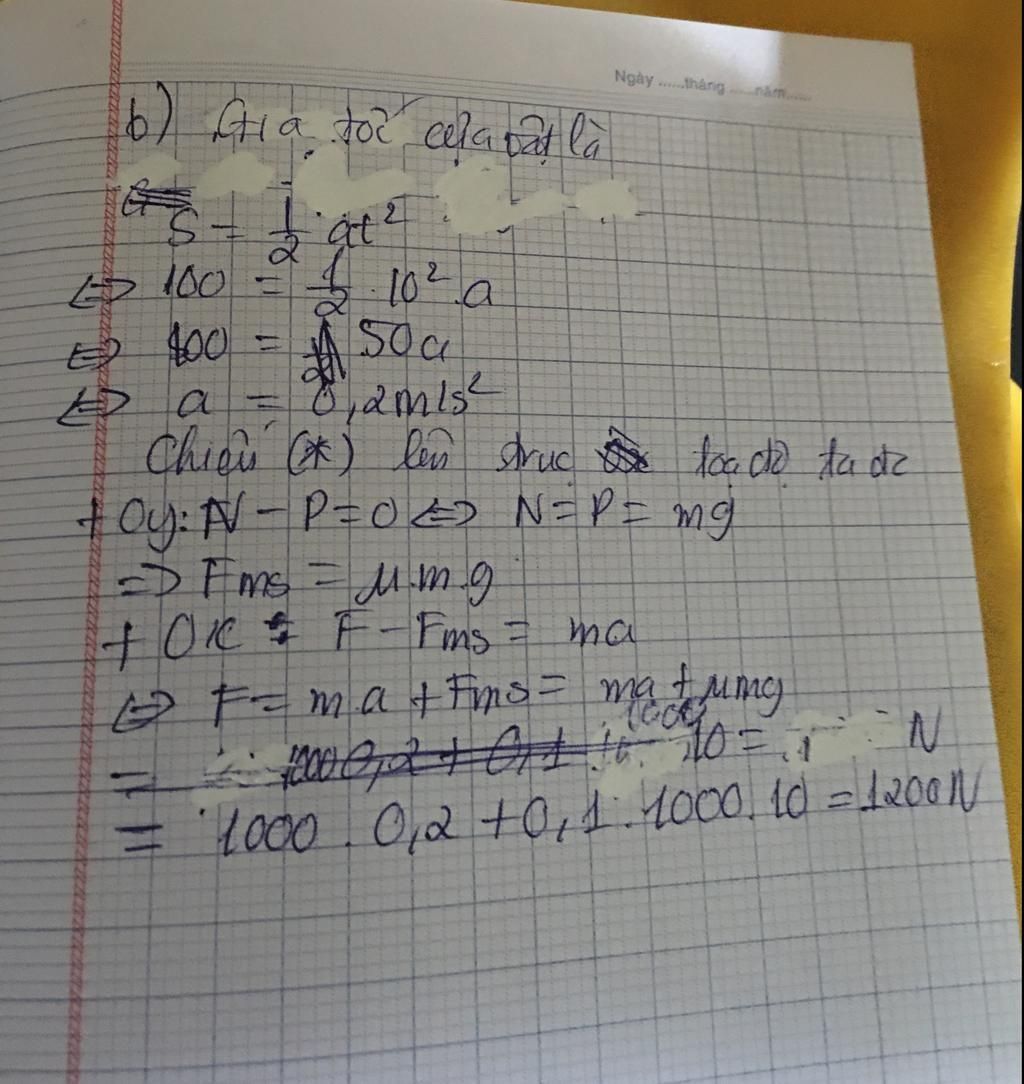 Ngày ......tháng ......năm......
b) Gia tốc của vật là
S = 1/2 at²
<=> 100 = 1/2 . 10² . a
<=> 100 = 50a
<=> a = 0,2m/s²
Chiếu (*) lên trục toạ độ ta đc
+ Oy: N - P = 0 <=> N = P = mg
=> Fms = μ.m.g
+ Ox : F - Fms = ma
<=> F = ma + Fms = ma + μmg
= 1000 0,2 + 0,1 1000 10 = N
= 1000 . 0,2 + 0,1 . 1000 . 10 = 1200N